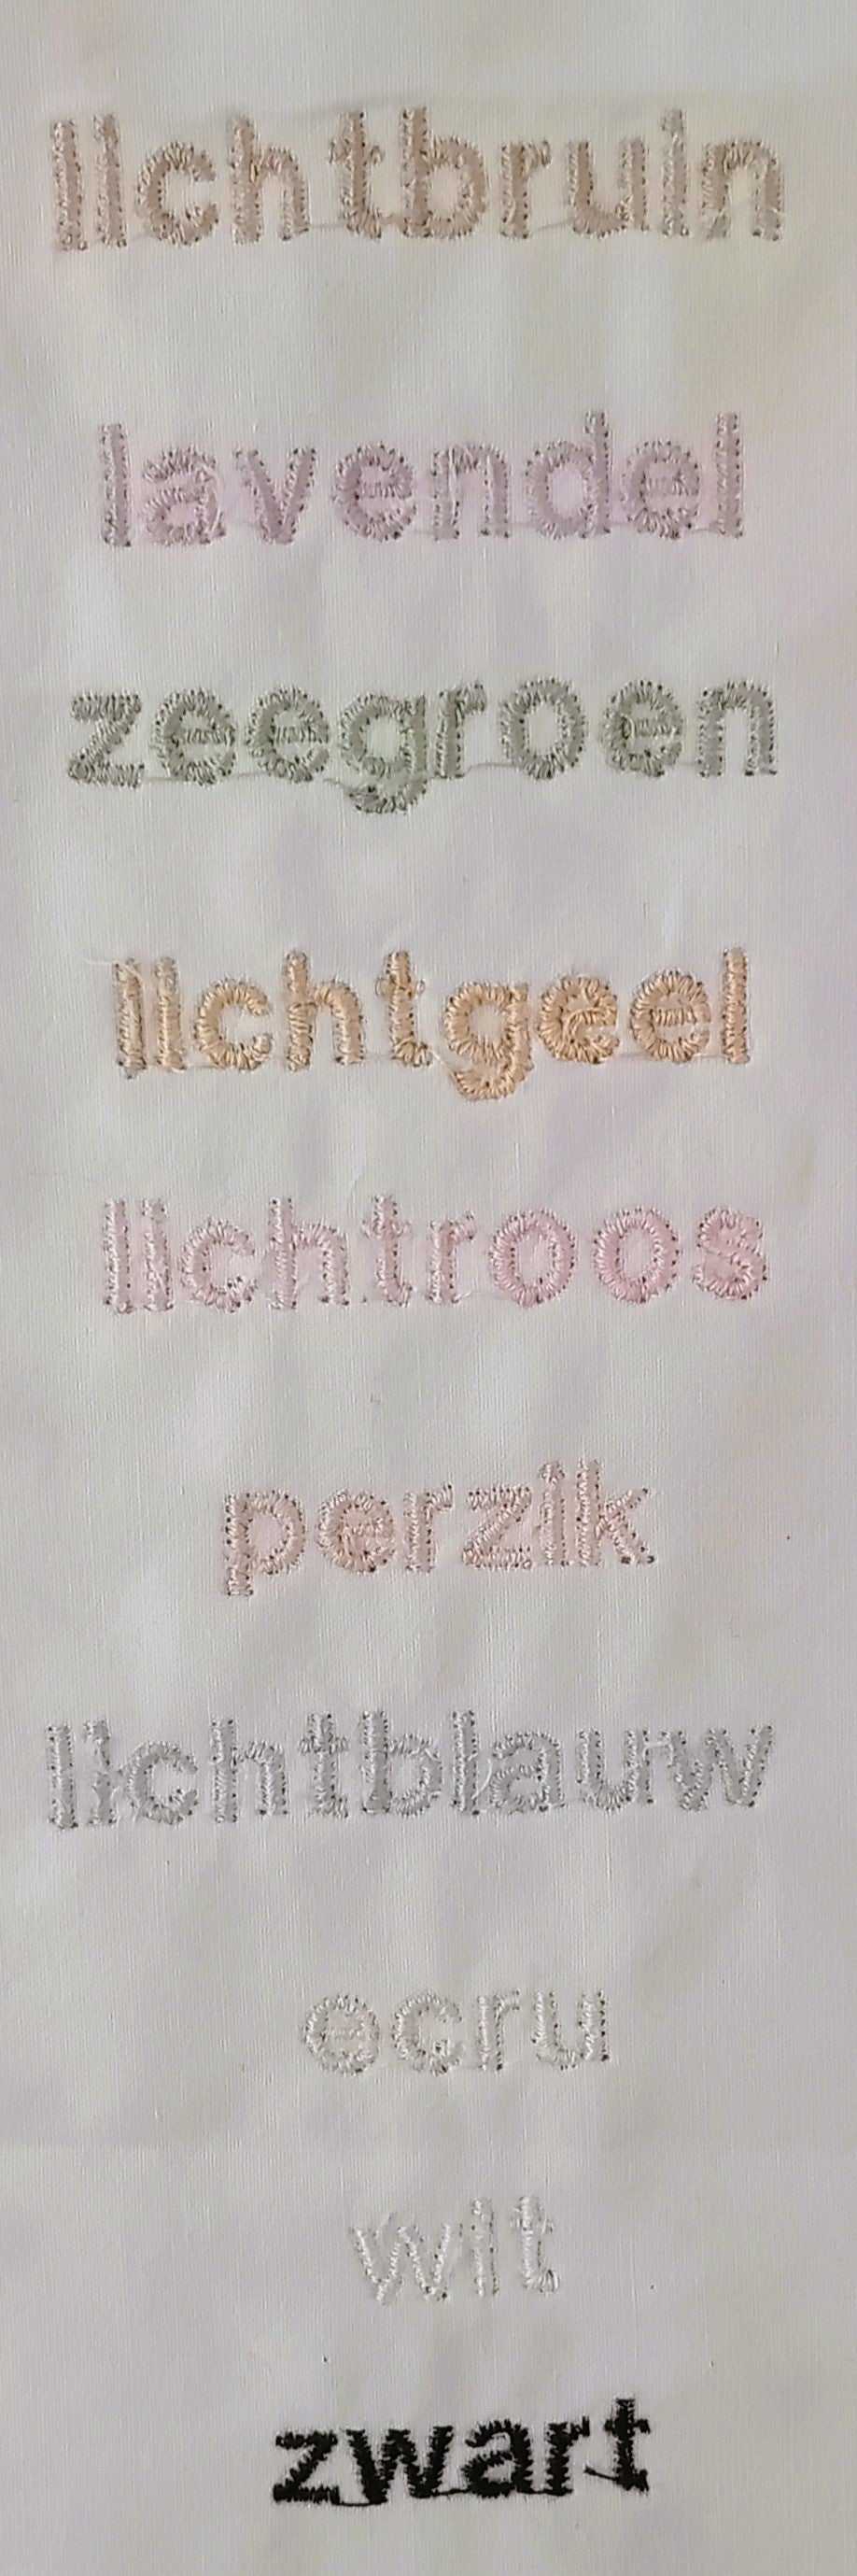 lichtbruin
lavendel
zeegroen
lichtgeel
lichtroos
perzik
lichtblauw
ecru
wit
zwart